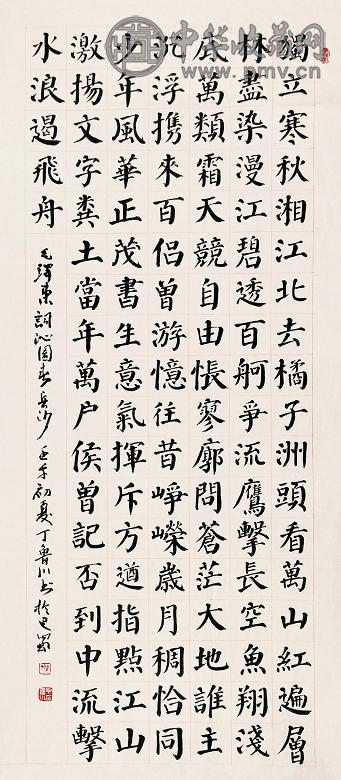 中华收藏网
www.pmv.cn
獨立寒秋湘江北去橘子洲頭看萬山紅遍層
林盡染漫江碧透百舸爭流鷹擊長空魚翔淺
底萬類霜天競自由悵寥廓問蒼茫大地誰主
沉浮携來百侣曾游憶往昔崢嶸歲月稠恰同
少年風華正茂書生意氣揮斥方遒指點江山
激揚文字糞土當年萬户侯曾記否到中流擊
水浪遏飛舟
毛澤東詞沁園春長沙 壬午初夏丁魯川書於